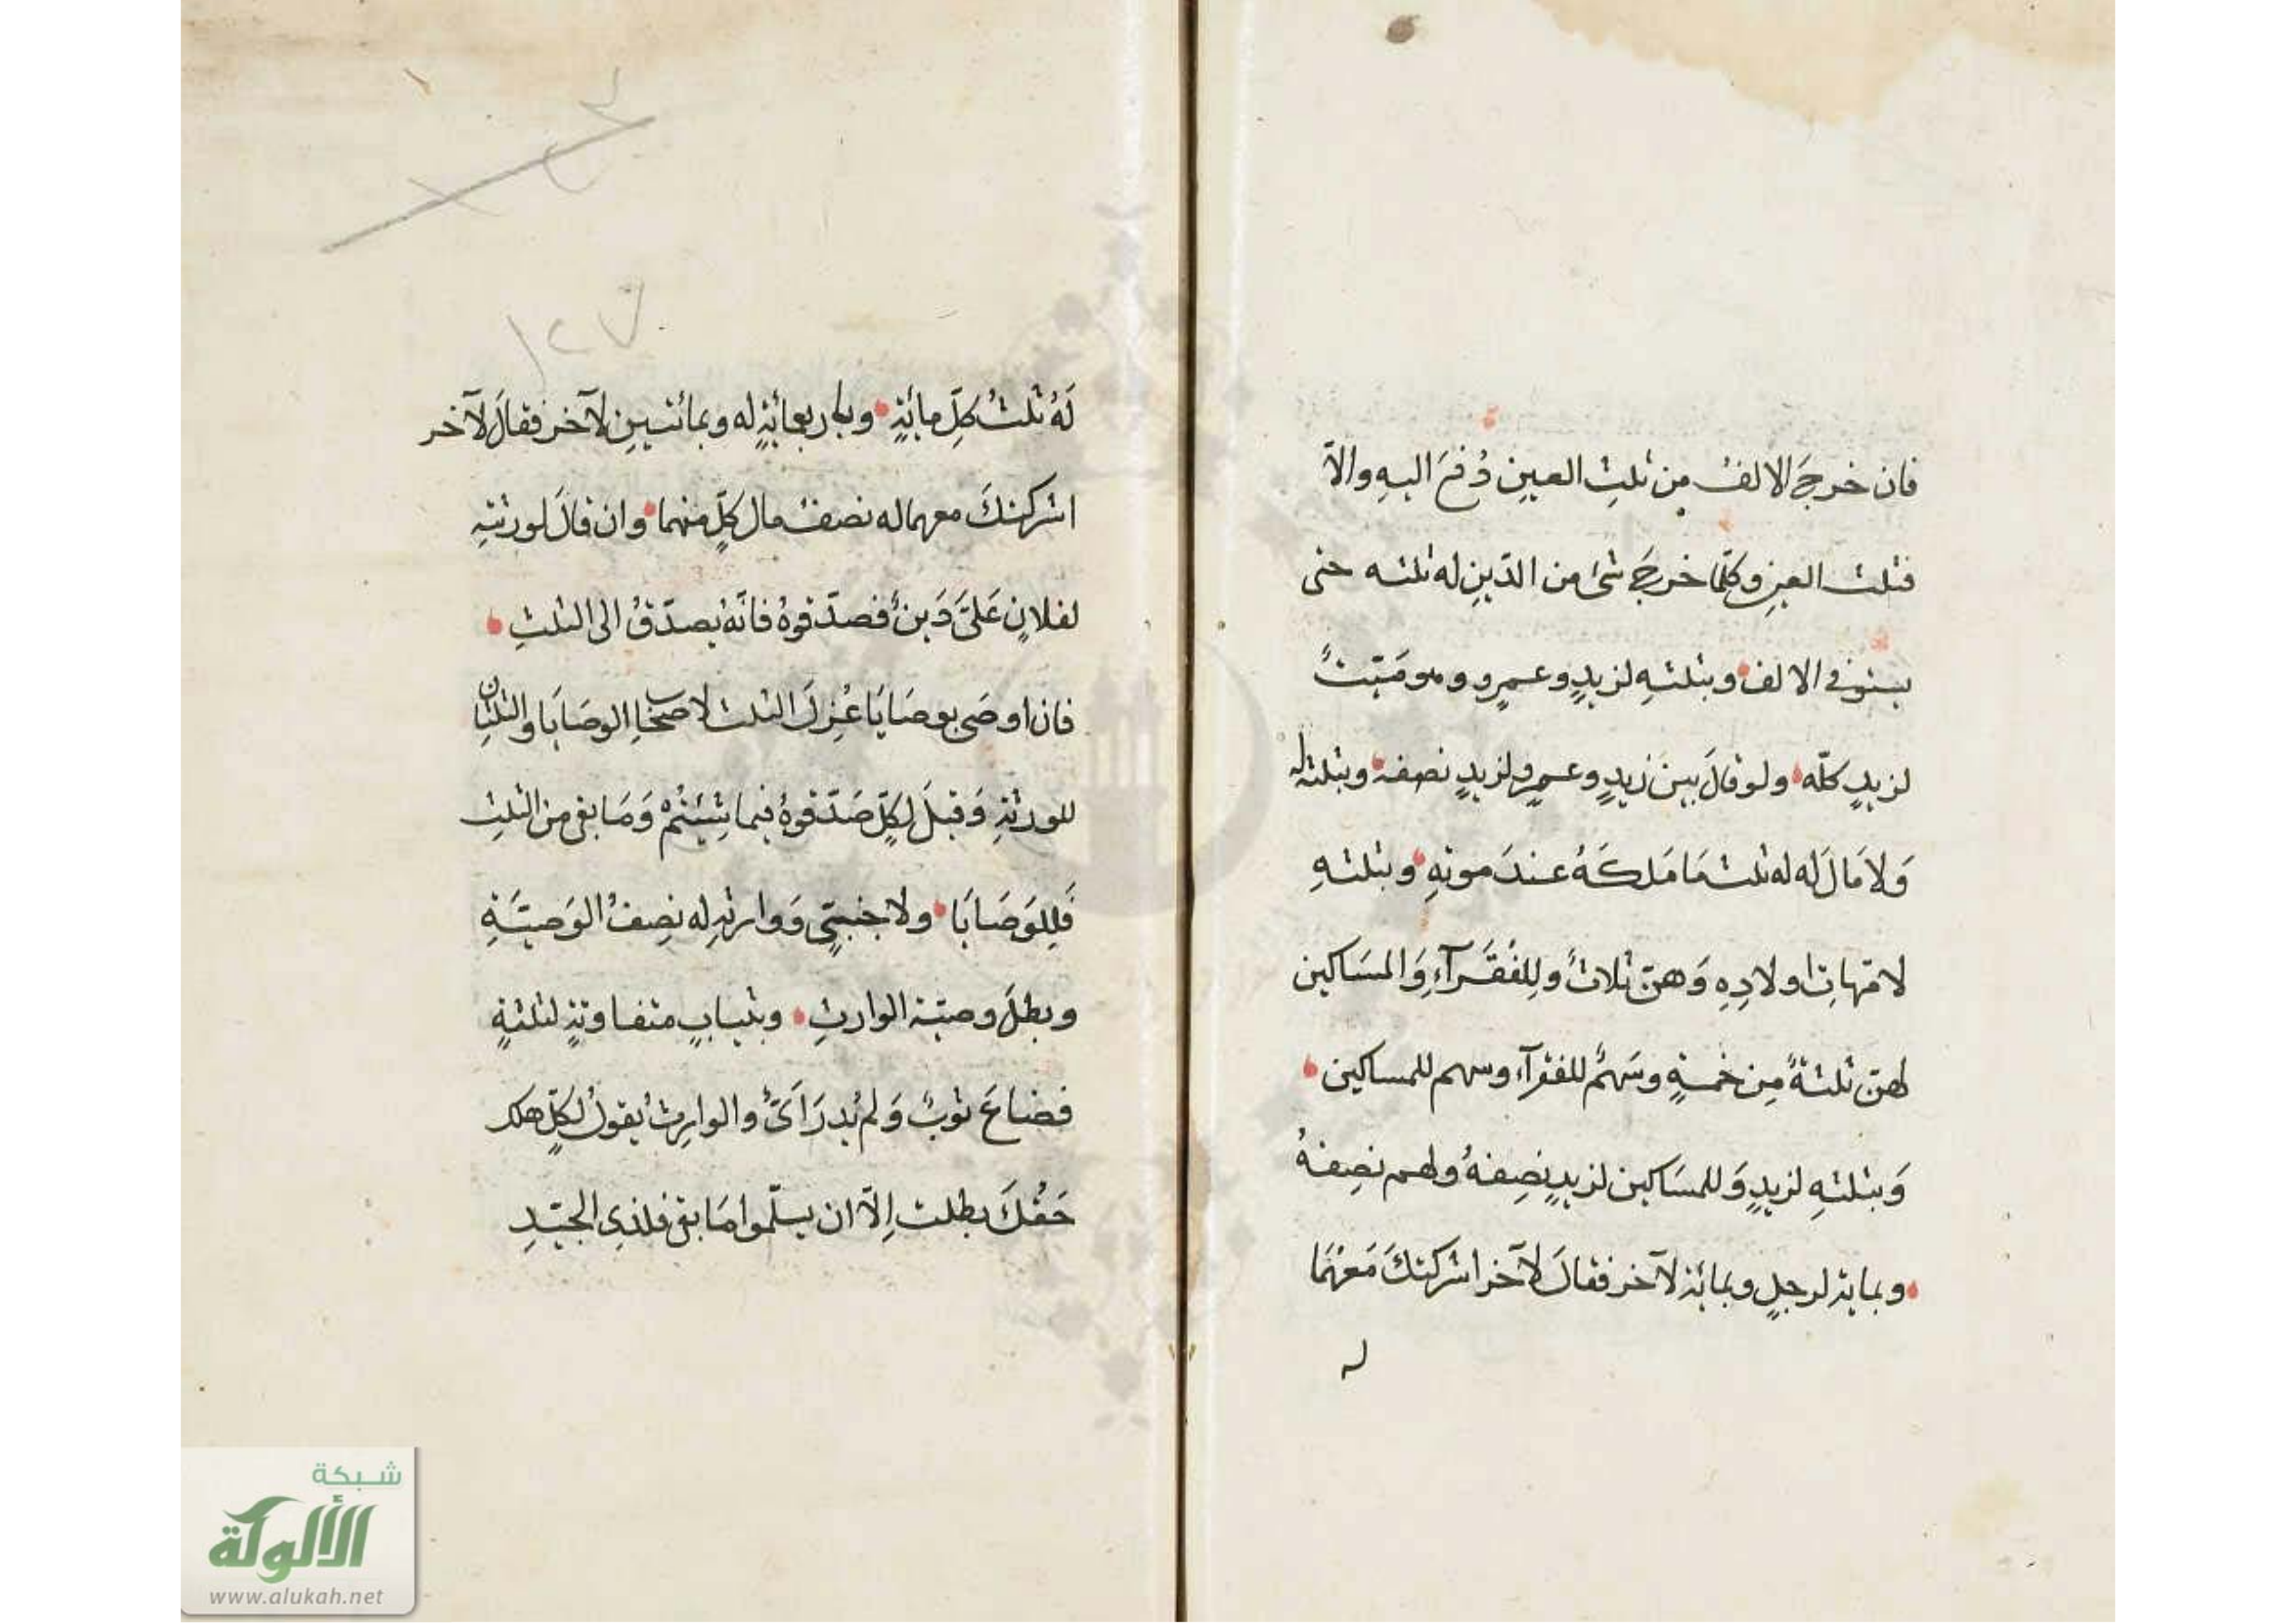 فان خرجَ الالفُ مِن ثلثِ العينِ دُفعَ اليهِ والاّ
فثلث العينِ وكلّما خرجَ شئ من الدّينِ له ثلثه حتى
يستوفى الالف وبثلثهِ لزيدٍ وعمرٍو وهو مَيّتٌ
لزيدٍ كلّه ولو قالَ بينَ زيدٍ وعمرٍو لزيدٍ نصفه وبثلثه له
وَلا مَالَ له له ثلث مَا مَلكَهُ عندَ موتهِ وبثلثهِ
لامّهاتِ اولادِهِ وَهنّ ثلاثٌ ولِلفُقَرآءِ وَالمسَاكين
لهنّ ثلثةٌ مِن خمسةٍ وسَهمٌ للفقرآءِ وسهم للمساكين
وَبثلثهِ لزيدٍ وَللمسَاكين لزيدٍ نِصِفهُ ولهم نصِفهُ
وبمايةٍ لرجلٍ وبمائةٍ لآخر فقالَ لآخر اشركتكَ مَعَهُمَا
له
١٢٧
لَهُ ثلثُ كلِّ مائةٍ وباربعمائةٍ له وبمائتينِ لآخر فقالَ لآخر
اشركتكَ معهما له نصفُ مال كلٍّ منهما وان قالَ لورثتهِ
لفلانٍ عَلىَّ دَينٌ فصدّقوهُ فانّهُ يصدّقُ الى الثلثِ
فان اوصَى بوصَايَا عُزِلَ الثلث لاصحابِ الوصَايَا والثلثانِ
للورثةِ وَقيلَ لكلٍّ صَدّقوهُ فيما شِئتُمْ وَمَا بقى من الثلثِ
فَلِلوَصَايَا ولاجنبىٍّ وَوارثهِ له نِصِفُ الوَصيّةِ
وبطلَ وصيّة الوارثِ وبثيابٍ متفاوتةٍ لثلثةٍ
فضاعَ ثوبٌ وَلم يُدرَ اَىٌّ والوارِثُ يقولُ لكلٍّ هلك
حَقّكَ بطلت اِلاّ ان يسلّموا مَا بقى فلذِى الجيّدِ
شبكة
الألوكة
www.alukah.net